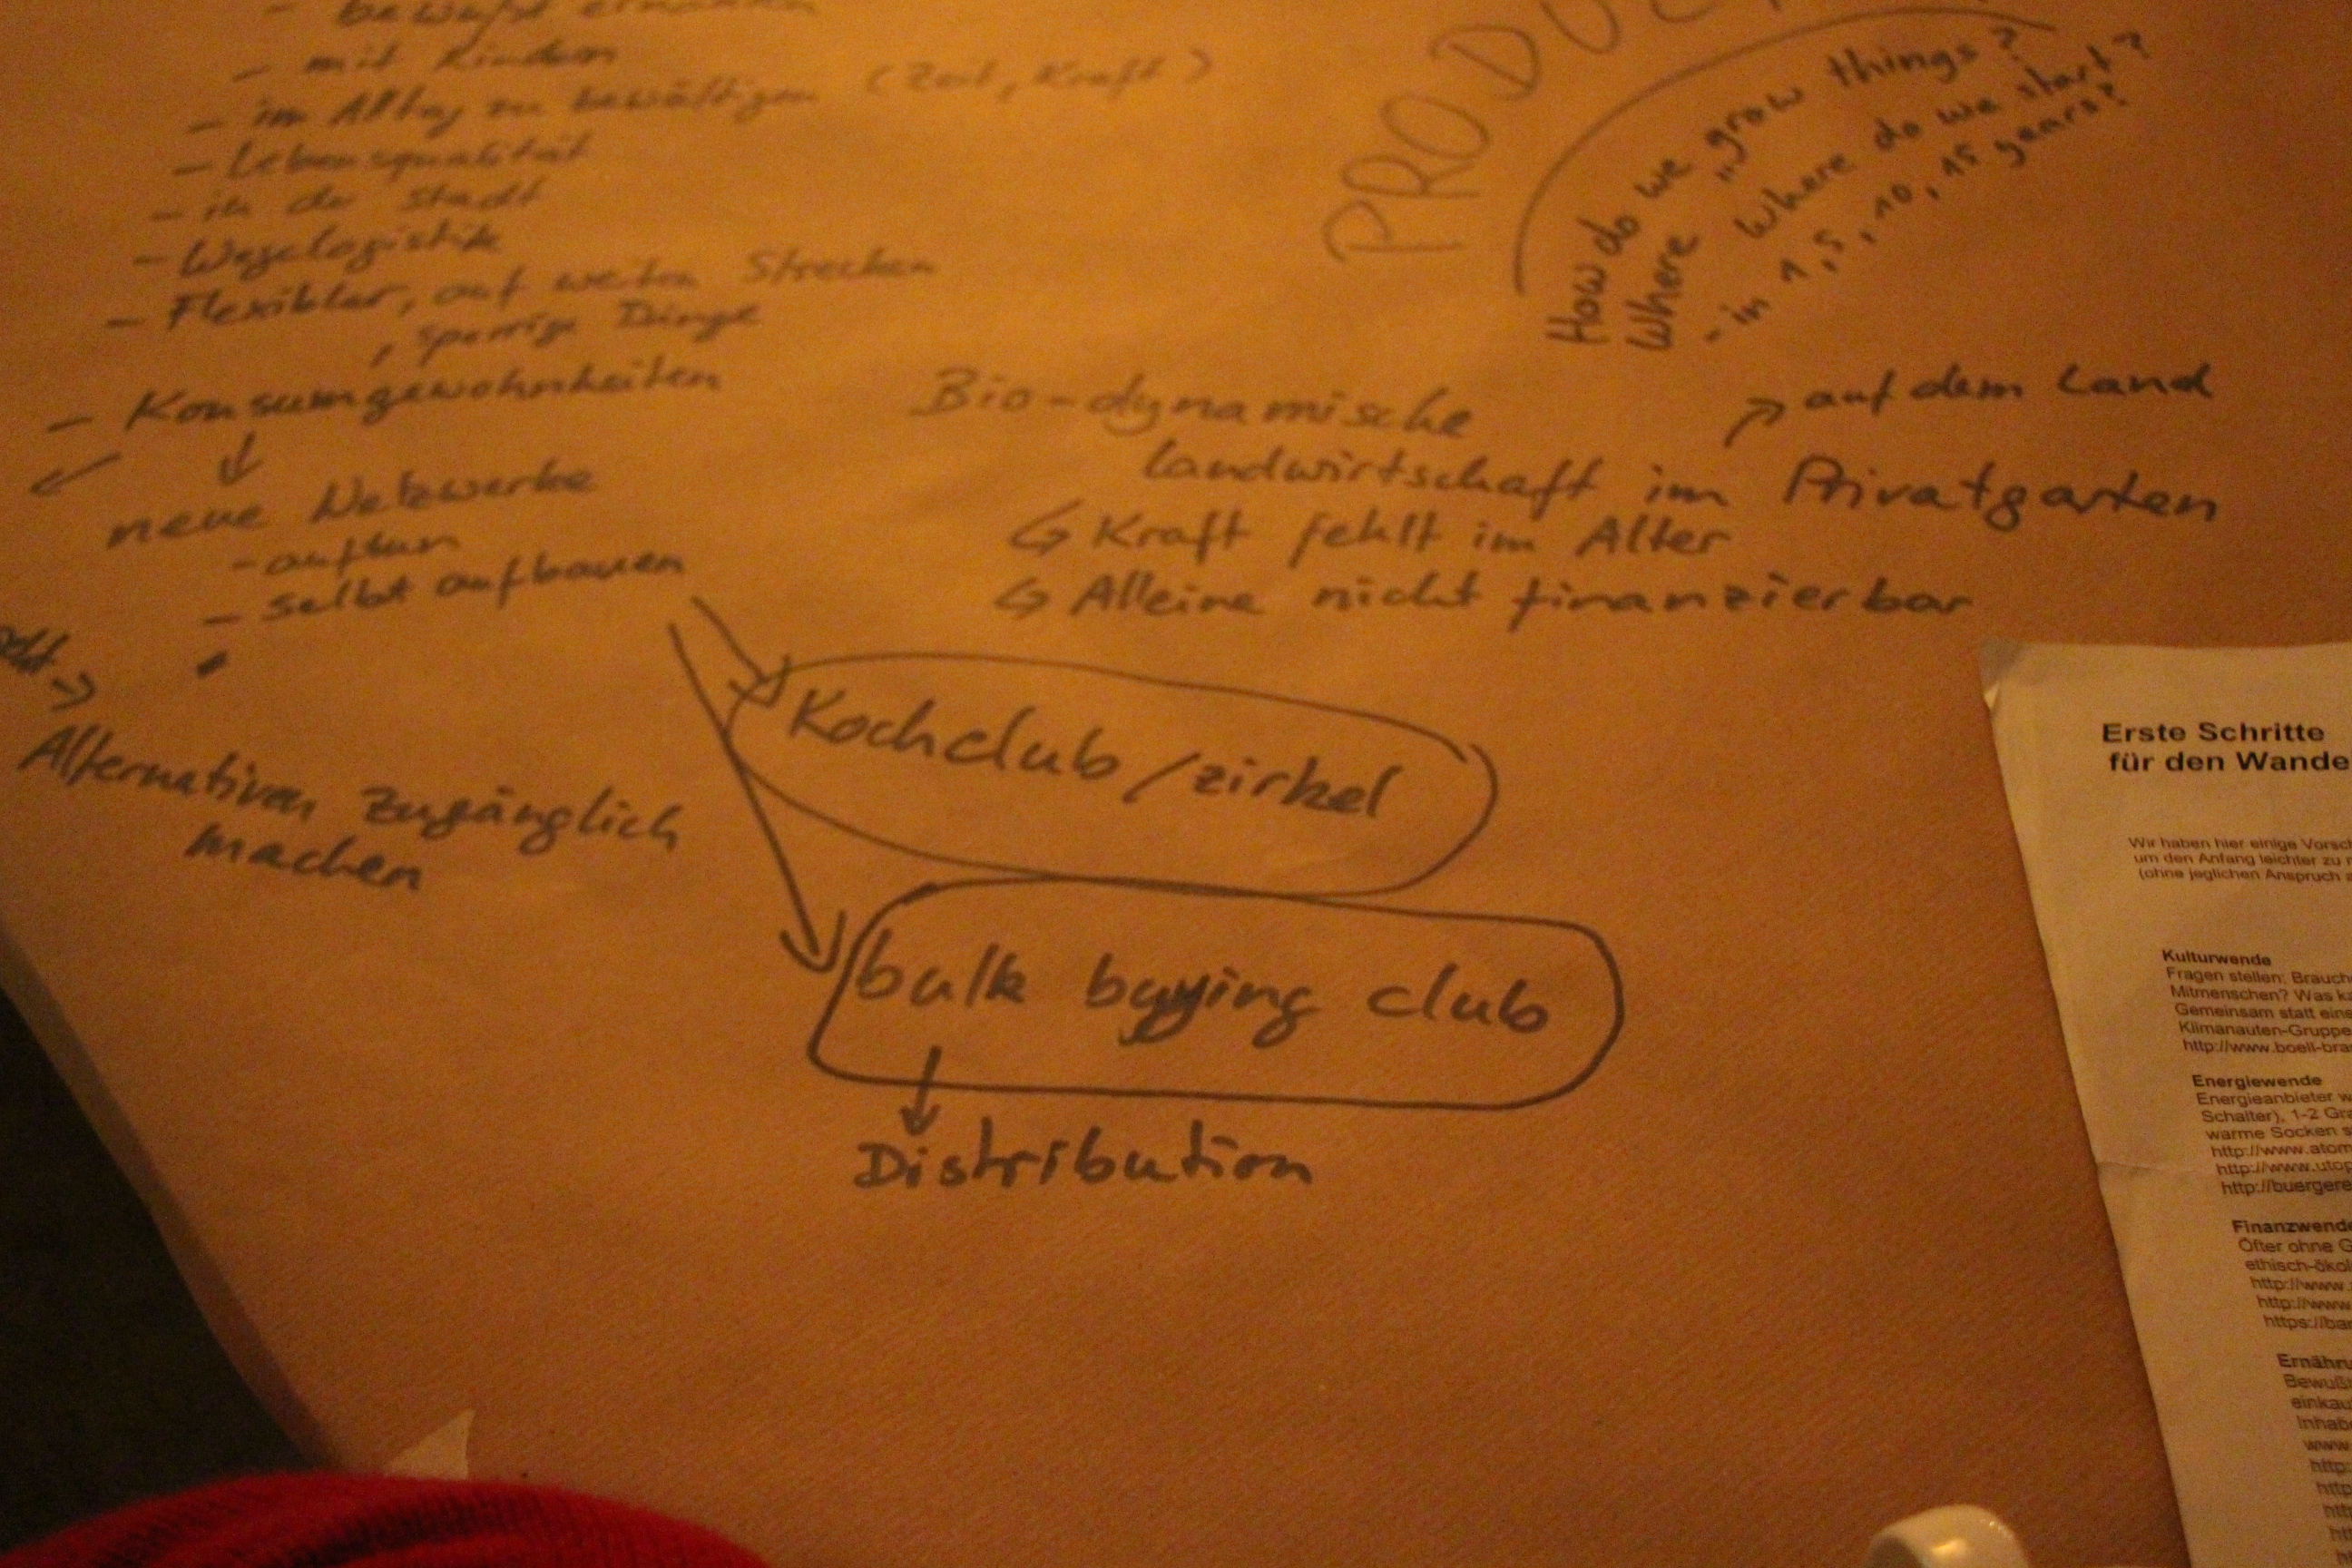 - mit Kindern
- im Alltag zu bewältigen (Zeit, Kraft)
- Lebensqualität
- in der Stadt
- Wegelogistik
- Flexibler, auf weiten Strecken
, sperrige Dinge
- Konsumgewohnheiten
neue Netzwerke
- auftun
- selbst aufbauen
Alternativen zugänglich
machen
How do we „grow things?
Where Where do we start?
- in 1, 5, 10, 15 years?
Bio-dynamische
Landwirtschaft im Privatgarten
auf dem Land
Kraft fehlt im Alter
Alleine nicht finanzierbar
Kochclub/zirkel
bulk buying club
Distribution
Erste Schritte
für den Wande
Wir haben hier einige Vorsch
um den Anfang leichter zu
(ohne jeglichen Anspruch
Kulturwende
Fragen stellen: Brauch
Mitmenschen? Was ka
Gemeinsam statt eins
Klimanauten-Gruppe
http://www.boell-bra
Energiewende
Energieanbieter w
Schalter), 1-2 Gra
warme Socken s
http://www.atom
http://www.utop
http://buergere
Finanzwende
Öfter ohne G
ethisch-ökol
http://www.
http://www.
https://ban
Ernähru
Bewußt
einkau
Inhab
www
http:
http